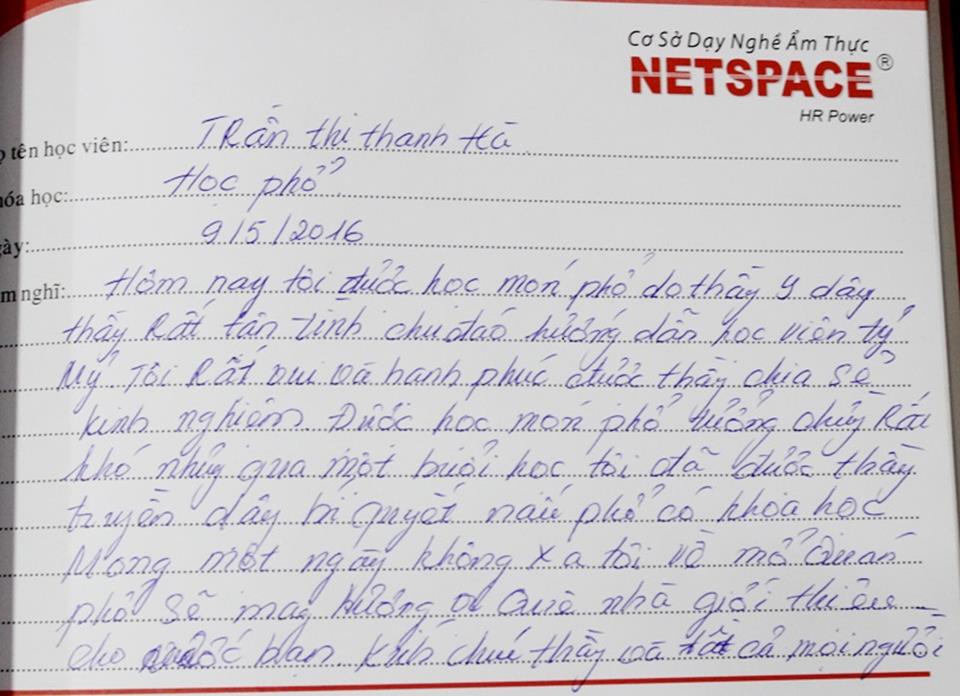 Cơ Sở Dạy Nghề Ẩm Thực
NETSPACE®
HR Power
tên học viên: TRần thị thanh Hà
hóa học: Học phở
gày: 9/5/2016
m nghĩ: Hôm nay tôi được học món phở do thầy y dây
thầy Rất tân tình chu đaó hướng dẫn học viên tỷ
Mỷ Tôi Rất vui và hanh phúc được thầy chia sẻ
kinh nghiêm Được học món phở tưởng chừng Rất
khó nhưg qua một buổi học tôi đã được thầy
truyền dây bí quyết nấu phở có khoa học
Mong một ngày không xa tôi về mở Quán
phở sẽ mag hương Quê nhà giới thiêu
cho bạn kính chúc thầy và tất cả mọi người